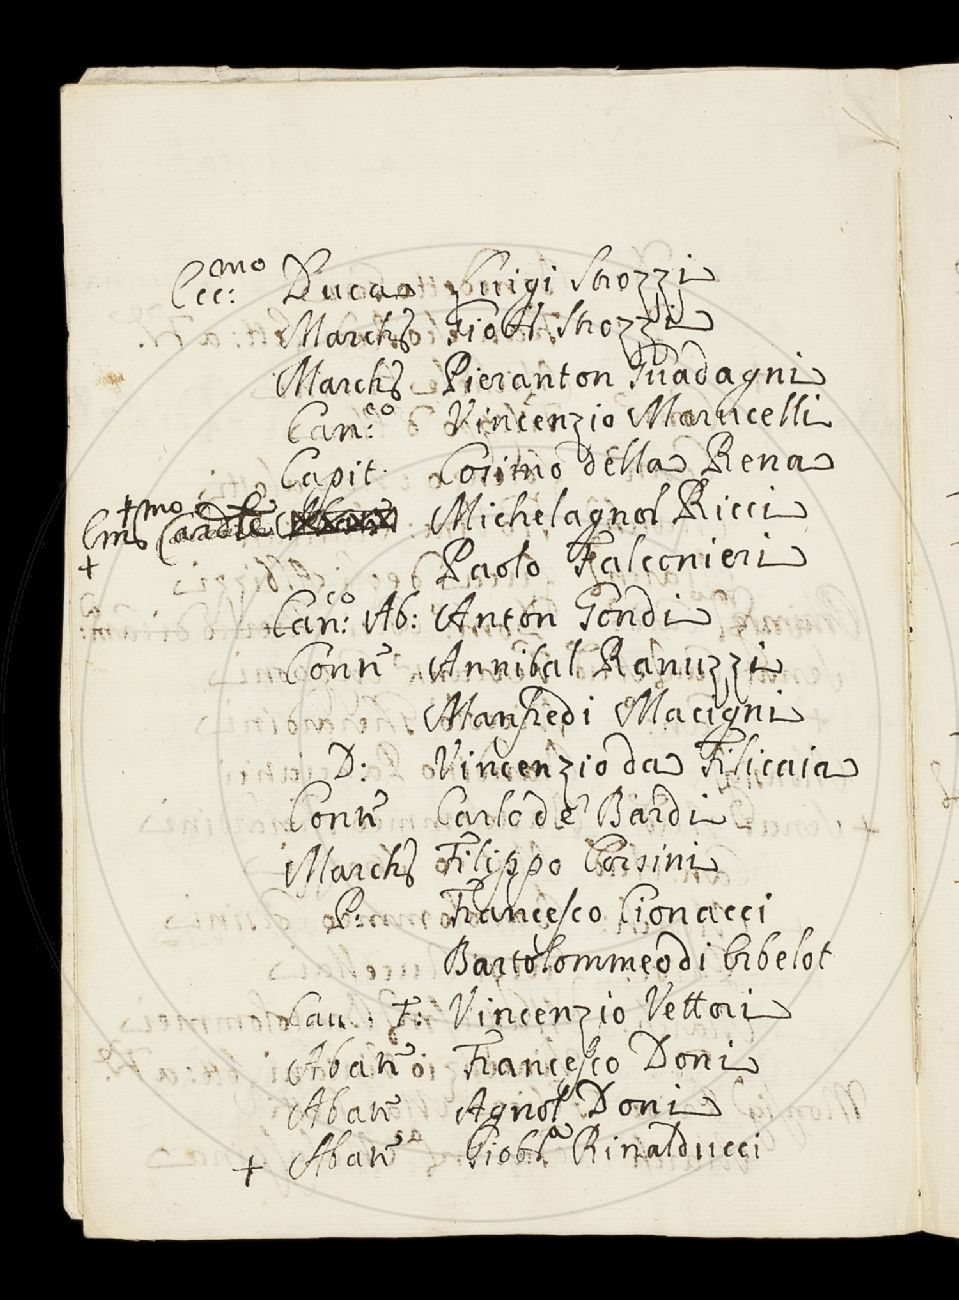 Ecc:mo Duca Luigi Strozzi
March Giobt Strozzi
March Pieranton Guadagni
Can:co Vincenzio Marucelli
Capit. Cosimo della Rena
+ Em:mo Cardle Michelagnol Ricci
+ Paolo Falconieri
Can:co Ab: Anton Gondi
Conte Annibal Ranuzzi
Manfredi Macigni
D: Vincenzio da Filicaia
Conte Carlo de' Bardi
March Filippo Corsini
P: Francesco Cionacci
Bartolommeo di Erbelot
Cau. F: Vincenzio Vettori
Abate Francesco Doni
Abate Agnol Doni
+ Abate Giobta Rinalducci